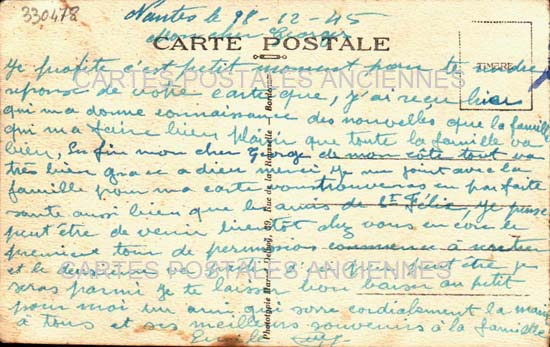 330478
Nantes le 98-12-45
Mon cher Georges
CARTE POSTALE
TIMBRE
Je profite c'est petit moment pour te rendre
reponse de votre carte que, j'ai reçu hier
qui ma donne connaissance des nouvelles que la famille
qui ma faire bien plaisir que toute la famille va
bien, En fin mon cher George de mon côté tout va
très bien grace a dieu merci, Je me joint avec la
famille pour ma carte vous trouverons en parfaite
santé aussi bien que les amis de St Félix, Je pense
peut être de venir bientot chez vous encore le
premier tour de permission commence à rentrer
et le deuxième peut être j'y
serais parmi Je te laisse bon baiser au petit
pour moi un ami qui serre cordialement la main
à tous et ses meilleurs souvenirs à la famille
CARTES POSTALES ANCIENNES
CARTES POSTALES ANCIENNES
Phototypie Marcel Delboy, 39, rue de la Rousselle — Bordeaux